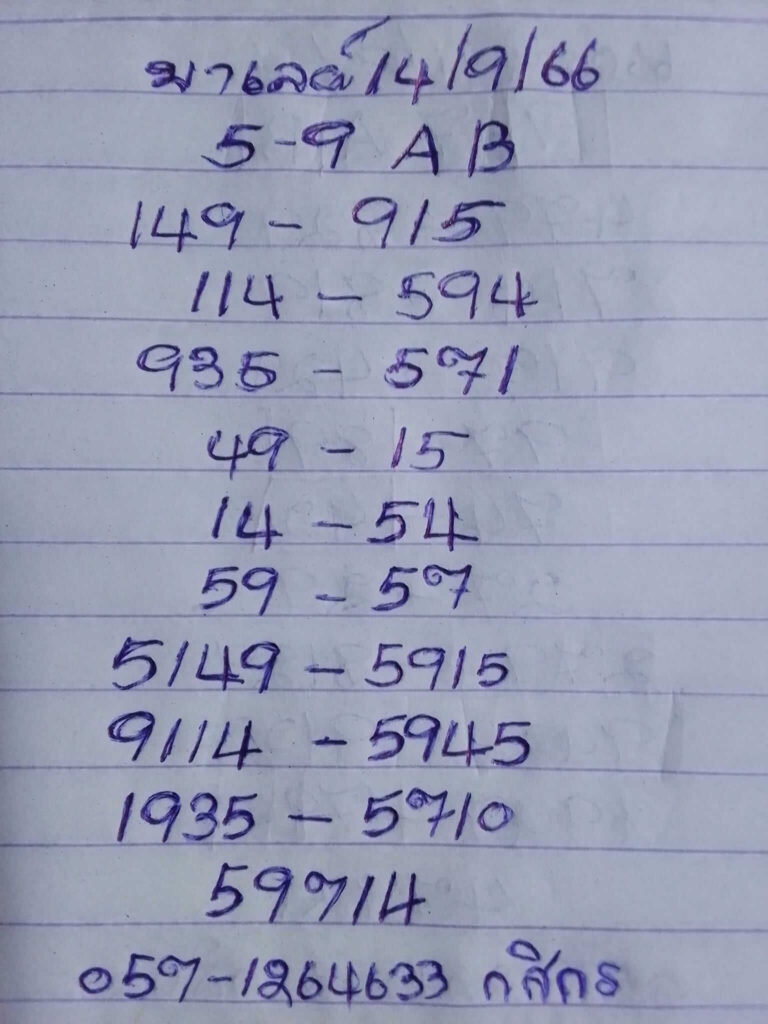 มาเลย์ 14/9/66
5-9 A B
149 - 915
114 - 594
935 - 571
49 - 15
14 - 54
59 - 57
5149 - 5915
9114 - 5945
1935 - 5710
59714
057-1264633 กสิกร